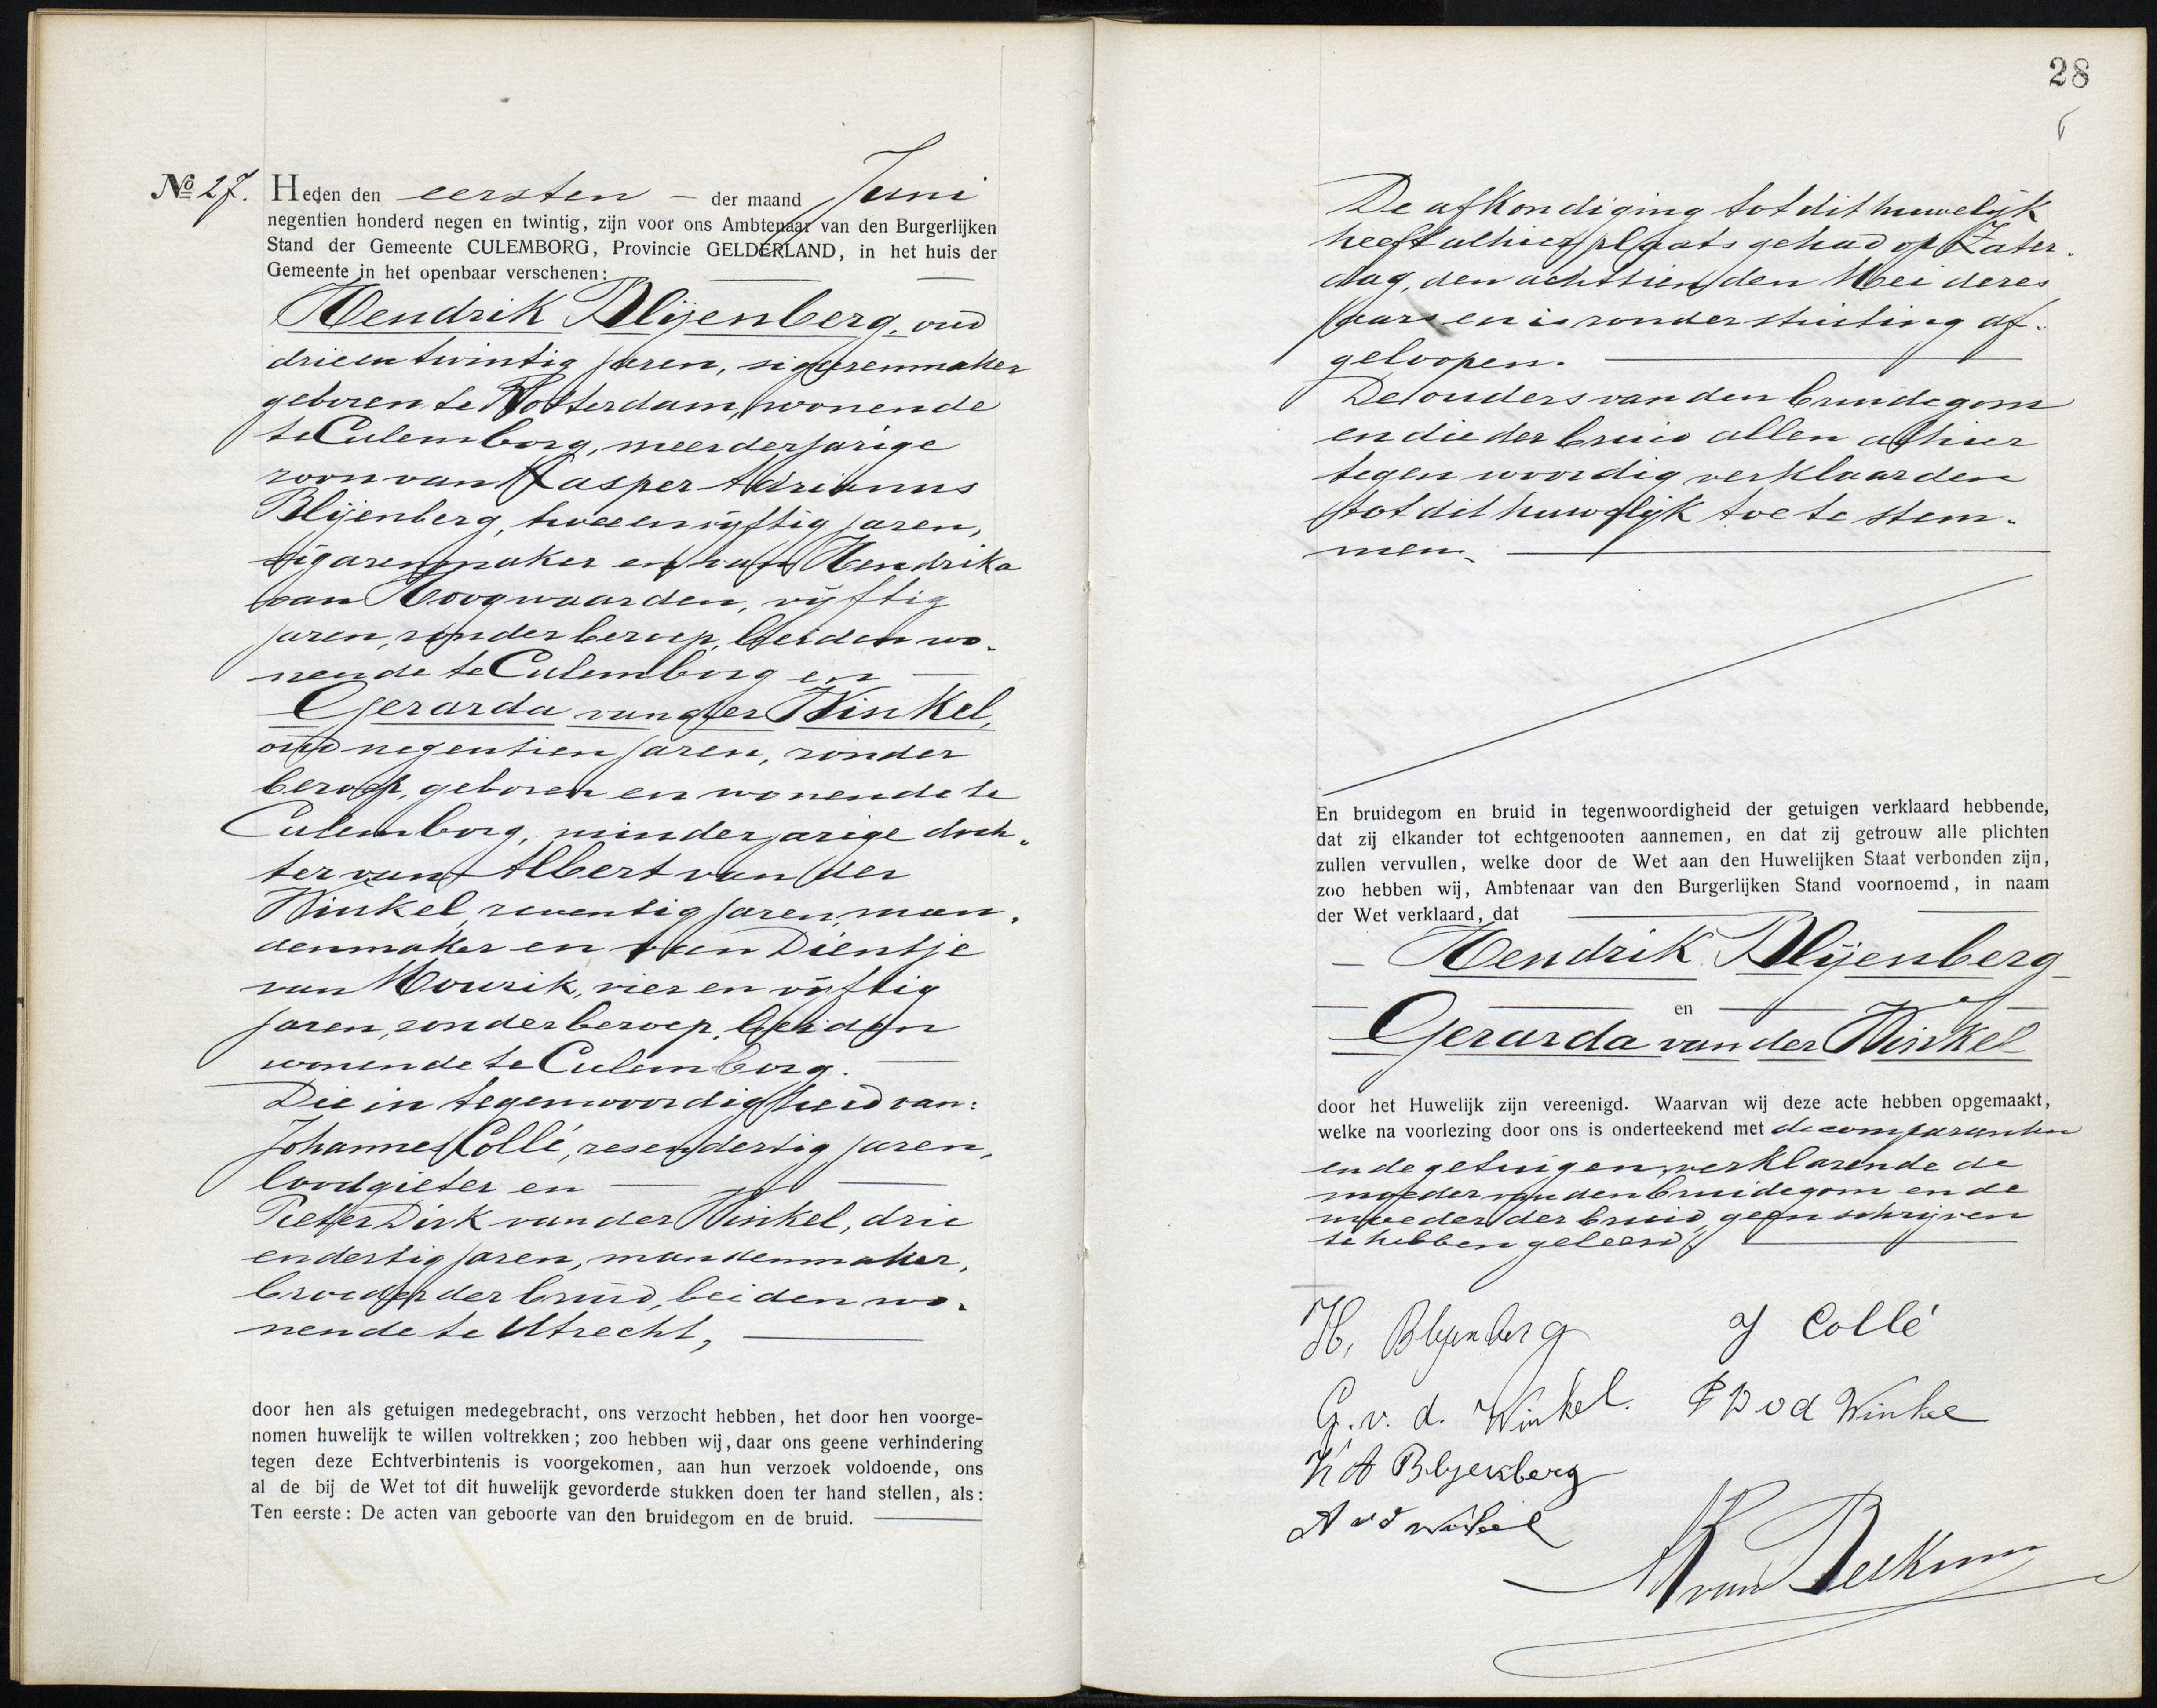 No 27. Heden den eersten - der maand Juni
negentien honderd negen en twintig, zijn voor ons Ambtenaar van den Burgerlijken
Stand der Gemeente CULEMBORG, Provincie GELDERLAND, in het huis der
Gemeente in het openbaar verschenen:
Hendrik Blijenberg, oud
drieëntwintig jaren, sigarenmaker
geboren te Rotterdam, wonende
te Culemborg, meerderjarige
zoon van Kasper Adrianus
Blijenberg, tweeenvijftig jaren,
sigarenmaker en van Hendrika
van Hoogwaarden, vijftig
jaren, zonder beroep, beiden wo-
nende te Culemborg en
Gerarda van der Winkel,
oud negentien jaren, zonder
beroep, geboren en wonende te
Culemborg, minderjarige doch-
ter van Albert van der
Winkel, zeventig jaren, man-
denmaker en van Dientje
van Mourik, vier en vijftig
jaren, zonder beroep, beiden
wonende te Culemborg.
Die in tegenwoordigheid van:
Johannes Collé, zesendertig jaren,
loodgieter en
Pieter Dirk van der Winkel, drie
endertig jaren, mandenmaker,
broeder der bruid, beiden wo-
nende te Utrecht,
door hen als getuigen medegebracht, ons verzocht hebben, het door hen voorge-
nomen huwelijk te willen voltrekken; zoo hebben wij, daar ons geene verhindering
tegen deze Echtverbintenis is voorgekomen, aan hun verzoek voldoende, ons
al de bij de Wet tot dit huwelijk gevorderde stukken doen ter hand stellen, als:
Ten eerste: De acten van geboorte van den bruidegom en de bruid.
28
De afkondiging tot dit huwelijk
heeft alhier plaats gehad op Zater-
dag, den achttienden Mei dezes
jaars en is zonder stuiting af-
geloopen.
De ouders van den bruidegom
en die der bruid allen alhier
tegenwoordig verklaarden
tot dit huwelijk toe te stem-
men.
En bruidegom en bruid in tegenwoordigheid der getuigen verklaard hebbende,
dat zij elkander tot echtgenooten aannemen, en dat zij getrouw alle plichten
zullen vervullen, welke door de Wet aan den Huwelijken Staat verbonden zijn,
zoo hebben wij, Ambtenaar van den Burgerlijken Stand voornoemd, in naam
der Wet verklaard, dat
Hendrik Blijenberg
en
Gerarda van der Winkel
door het Huwelijk zijn vereenigd. Waarvan wij deze acte hebben opgemaakt,
welke na voorlezing door ons is onderteekend met de comparanten
en de getuigen, verklarende de
moeder van den bruidegom en de
moeder der bruid, geen schrijven
te hebben geleerd.
H. Blijenberg J Collé
G. v. d. Winkel. P D v d Winkel
K A Blijenberg
A v d Winkel
van Beekum